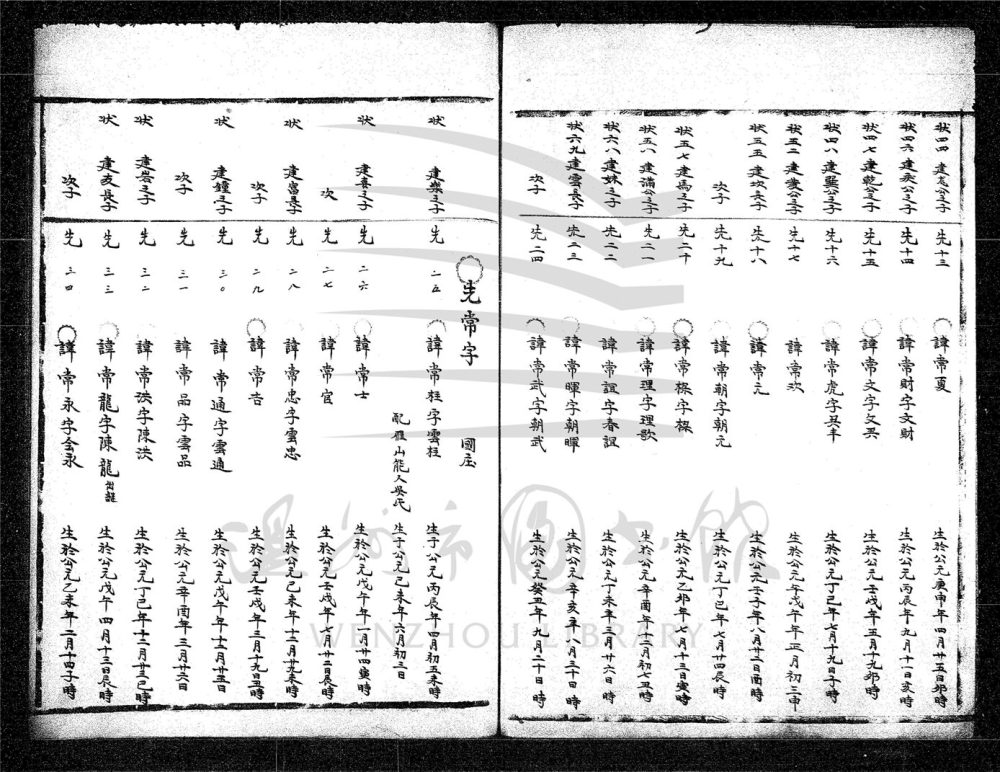 狀四四 建志公之子 先十三 諱常夏 生於公元庚申年四月廿五日卯時
狀四六 建癸公之子 先十四 諱常財字文財 生於公元丙辰年九月十一日亥時
狀四七 建乾公之子 先十五 諱常文字文昃 生於公元壬戌年五月十九卯時
狀四八 建巽公之子 先十六 諱常虎字英丰 生於公元丁巳年七月十九日子時
狀五二 建公之子 先十七 諱常欢 生於公元年戊午年正月初三申
狀五五 建坎長子 先十八 諱常元 生於公元壬子年八月廿二日酉時
次子 先十九 諱常朝字朝元 生於公元丁巳年七月廿四辰時
狀五七 建馬之子 先二十 諱常樑字樑 生於公元乙卯年七月十三日寅時
狀五八 建滿公之子 先二一 諱常理字理歌 生於公元辛酉年十二月初七丑時
狀六八 建妹之子 先二二 諱常誼字春誼 生於公元丁未年三月廿六日 時
狀六九 建雲長子 先二三 諱常暉字朝暉 生於公元辛亥年八月三十日 時
次子 先二四 諱常武字朝武 生於公元癸丑年九月二十日 時
先常字 國庄
狀 建樂之子 先二五 諱常柱字雲柱 生于公元丙辰年四月初五未時
配雁山能人吳氏 生于公元己未年六月初三日
狀 建喜之子 先二六 諱常士 生於公元戊午年一月廿四寅時
次 先二七 諱常官 生於公元壬戌年七月廿二日辰時
狀 建富長子 先二八 諱常忠字雲忠 生於公元己未年十二月廿九未時
次子 先二九 諱常吉 生於公元壬戌年三月十九日丑時
狀 建鐘之子 先三〇 諱常通字雲通 生於公元戊午年十二月廿五日
次子 先三一 諱常品字雲品 生於公元辛酉年三月廿六日
狀 建岩之子 先三二 諱常洪字陳洪 生於公元丁巳年十二月廿三巳時
狀 建友長子 先三三 諱常龍字陳龍 生於公元戊午四月十三日辰時
次子 先三四 諱常永字金永 生於公元乙未年二月十四子時
溫州市圖書館
WENZHOU LIBRARY